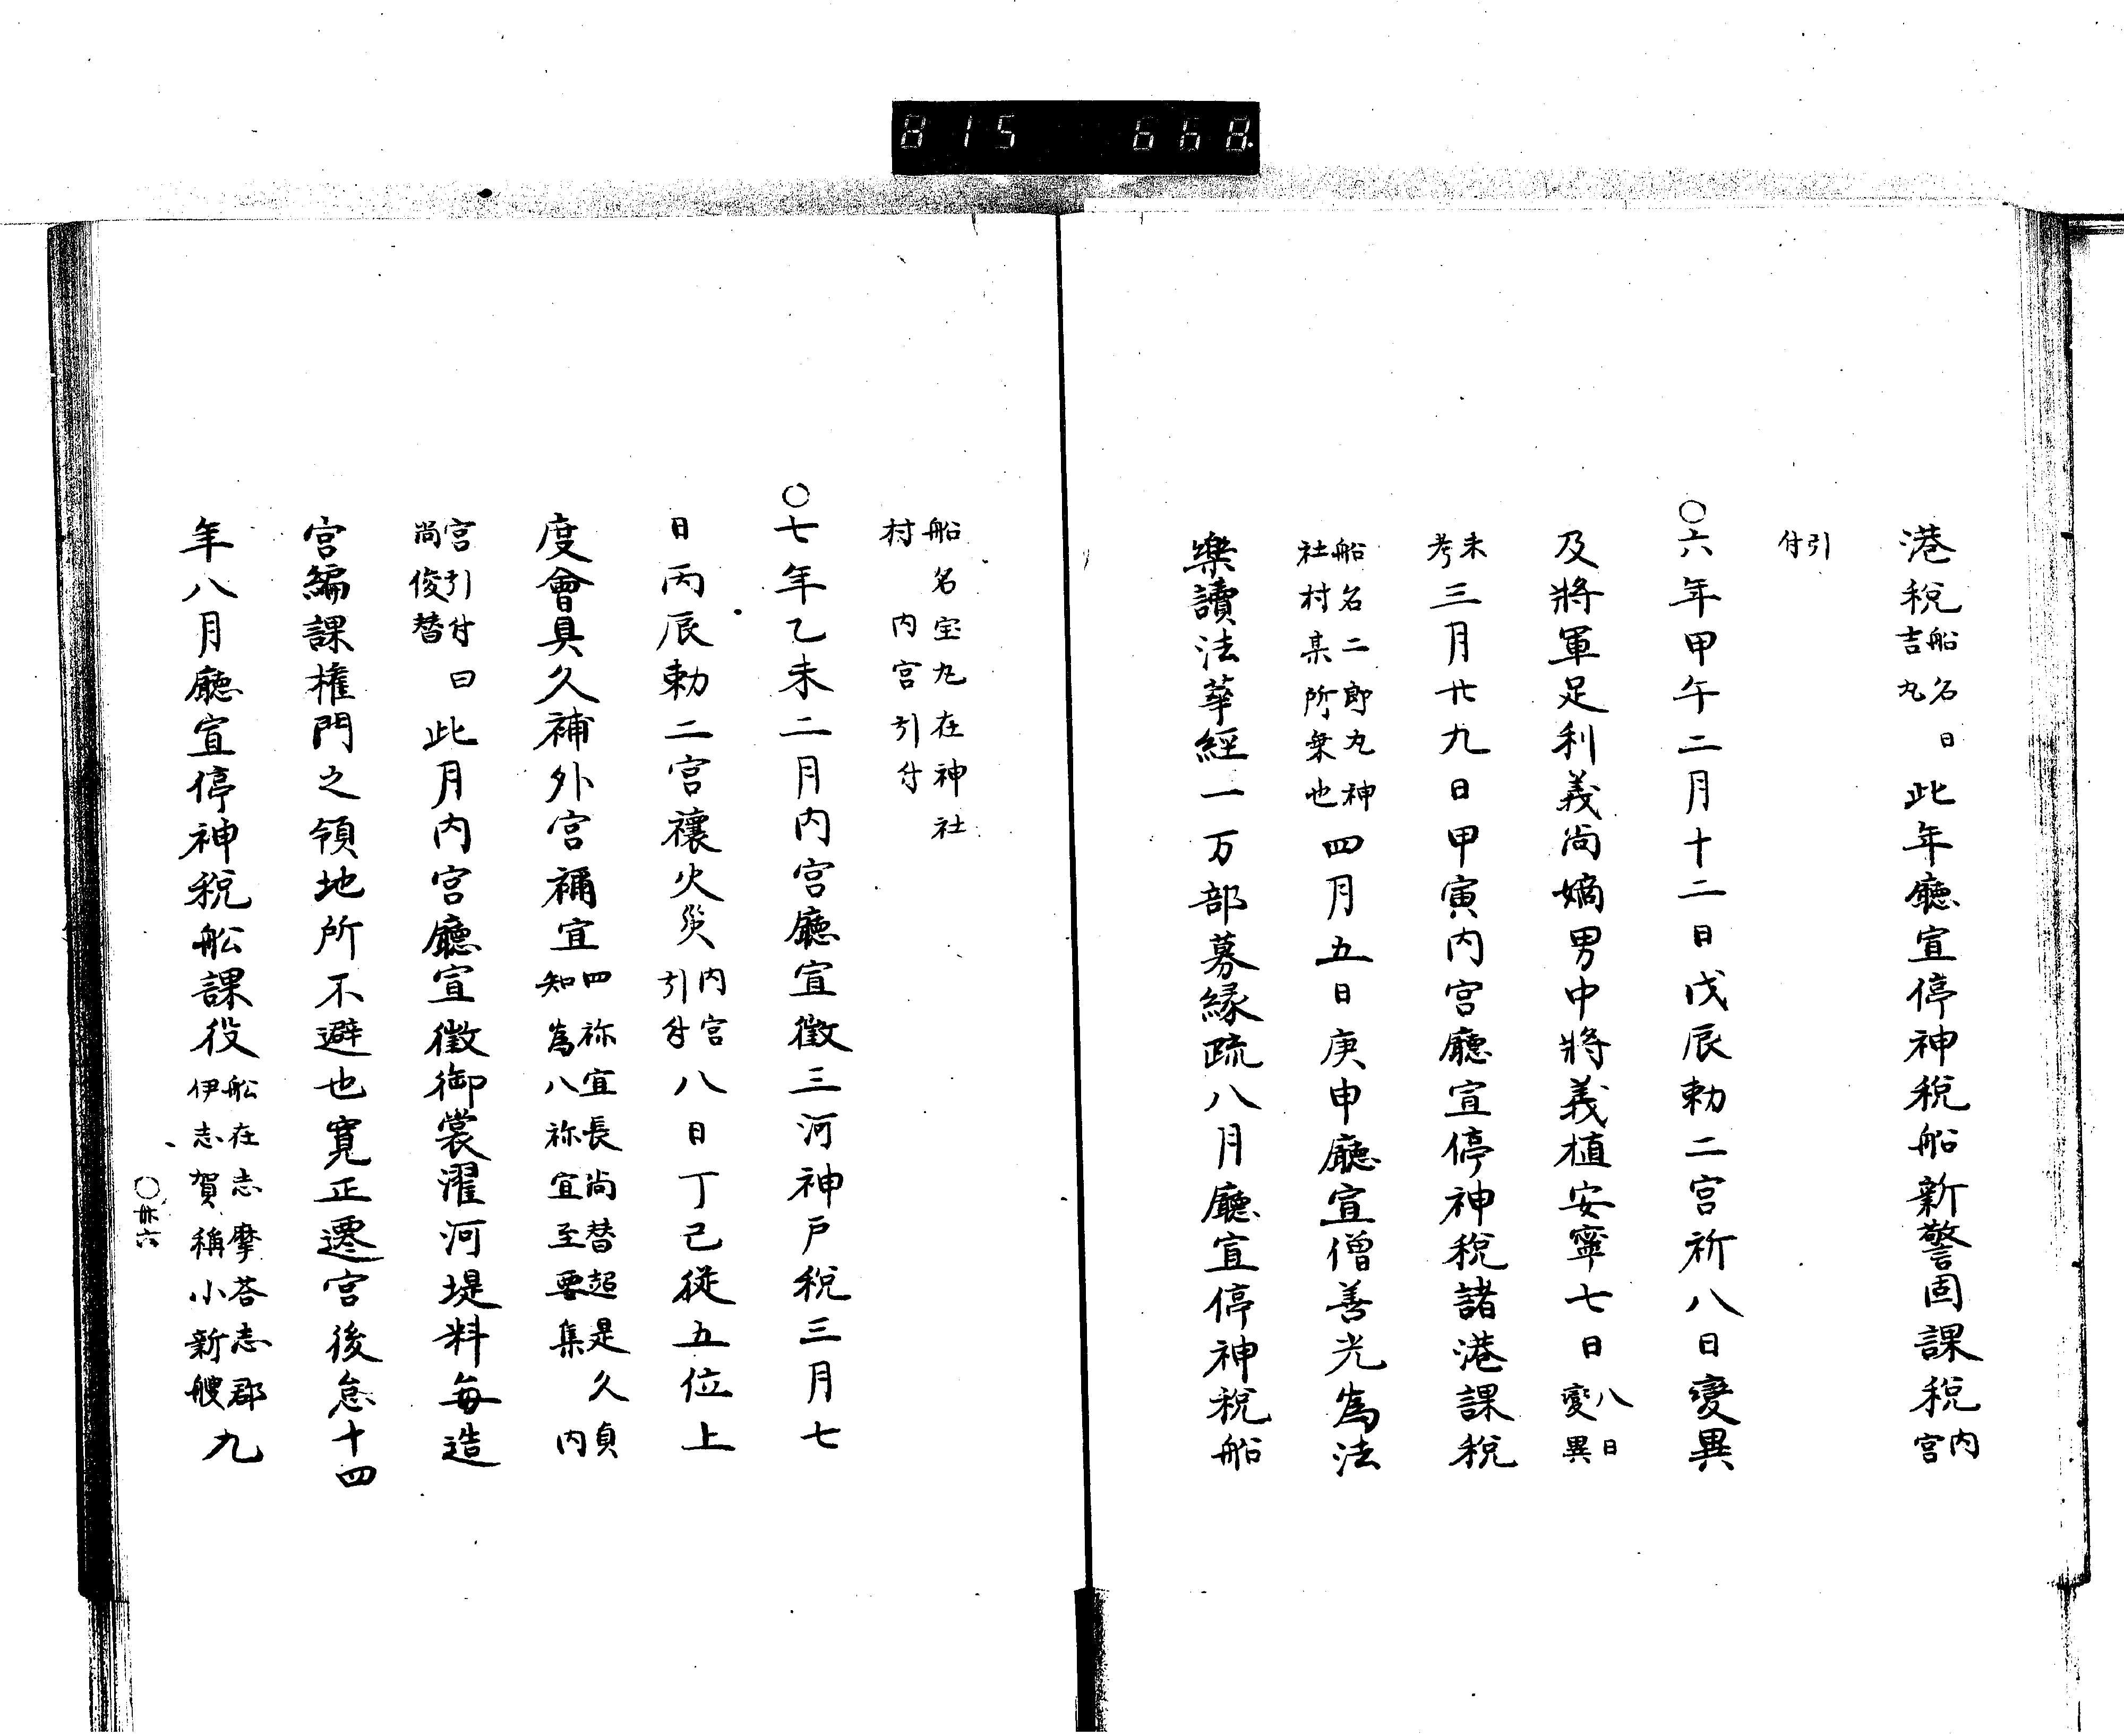 815 668
港税船名日吉丸此年廳宣停神税船新警固課税内宮
引付
○六年甲午二月十二日戊辰勅二宮祈八日變異
及將軍足利義尚嫡男中將義植安寧七日八日變異
未考三月廿九日甲寅内宮廳宣停神税諸港課税
船名二郎丸神社村某所乗也四月五日庚申廳宣僧善光為法
樂讀法華經一万部募縁疏八月廳宣停神税船
船名宝丸在神社村内宮引付
○七年乙未二月内宮廳宣徵三河神戸税三月七
日丙辰勅二宮禳火災内宮引付八日丁己従五位上
度會具久補外宮禰宜四祢宜長尚替超是久貞知為八祢宜至要集内
宮引付尚俊替曰此月内宮廳宣徵御裳濯河堤料毎造
宮編課権門之領地所不避也寛正遷宮後怠十四
年八月廳宣停神税舩課役舩在志摩荅志郡伊志賀稱小新艘九
○卅六